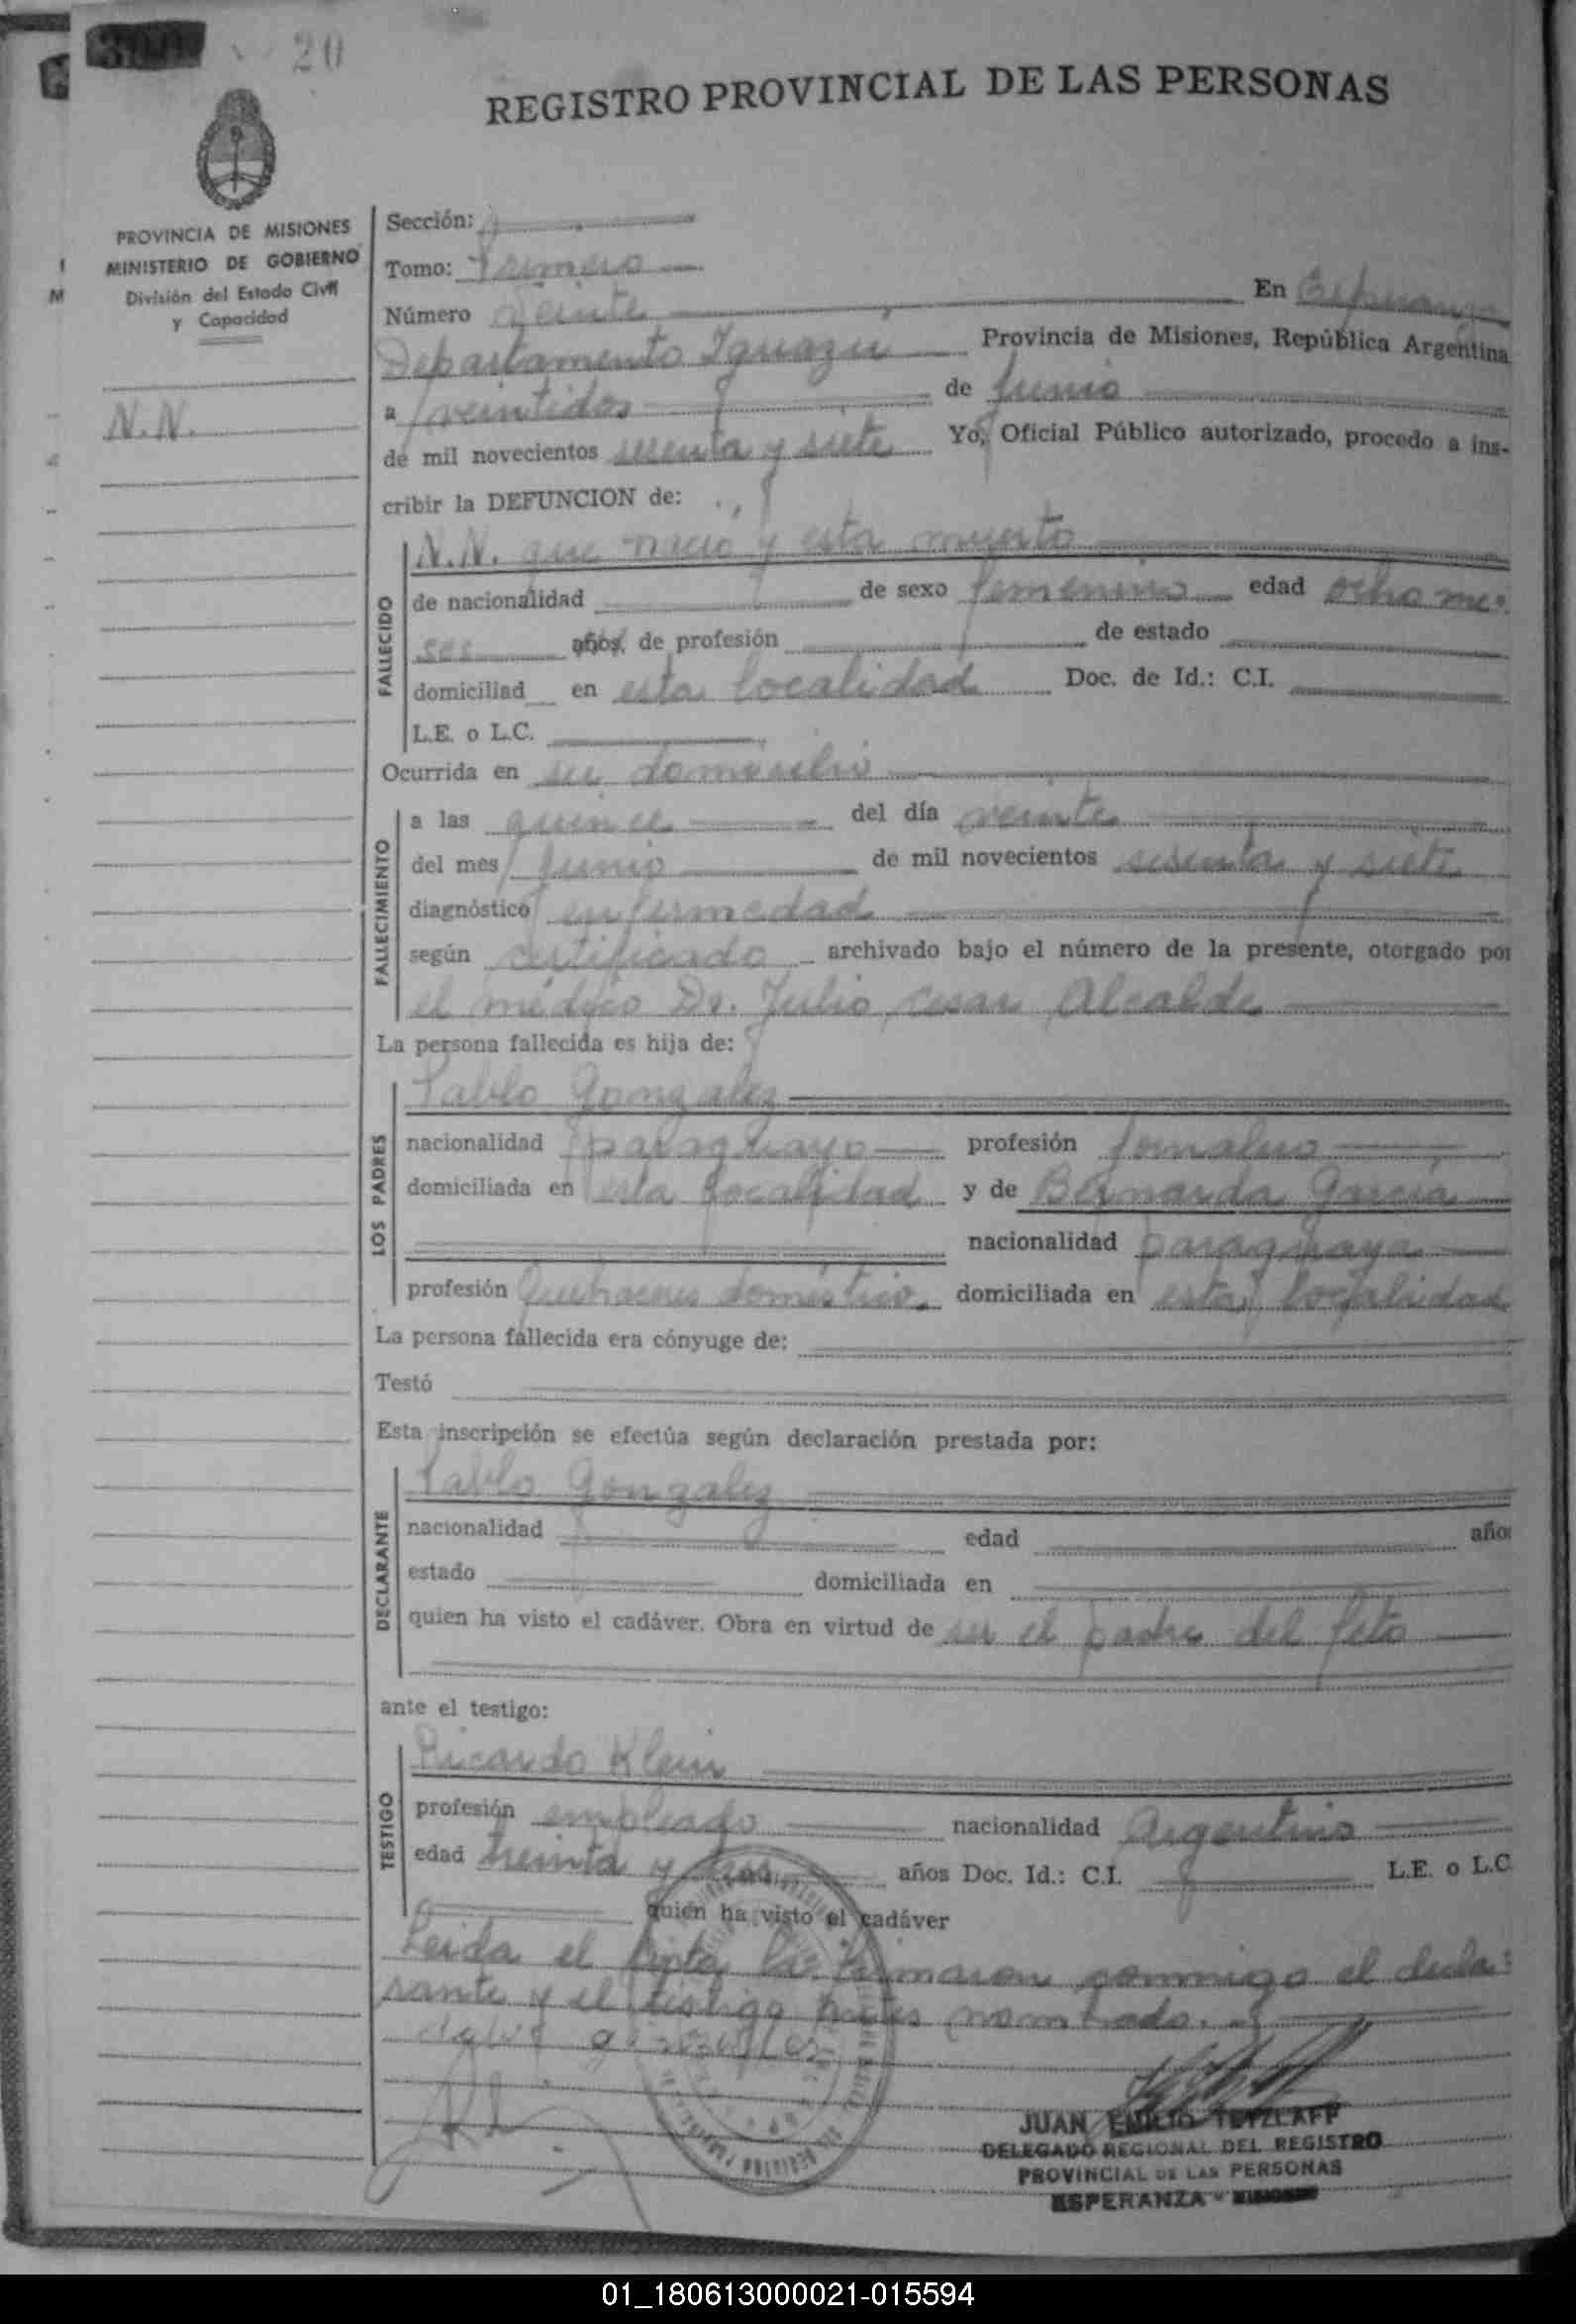 20
REGISTRO PROVINCIAL DE LAS PERSONAS
PROVINCIA DE MISIONES
MINISTERIO DE GOBIERNO
División del Estado Civil
y Capacidad
N.N.
Sección:
Tomo: Primero
Número Veinte En Esperanza
Departamento Iguazu Provincia de Misiones, República Argentina
a veintidos de Junio
de mil novecientos sesenta y siete Yo, Oficial Público autorizado, procedo a ins-
cribir la DEFUNCION de:
N.N. que nacio y esta muerto
FALLECIDO
de nacionalidad de sexo femenino edad ocho me-
ses años, de profesión de estado
domiciliad en esta localidad Doc. de Id.: C.I.
L.E. o L.C.
Ocurrida en su domicilio
FALLECIMIENTO
a las quince del día veinte
del mes Junio de mil novecientos sesenta y siete
diagnóstico enfermedad
según certificado archivado bajo el número de la presente, otorgado por
el médico Dr. Julio Cesar Alcalde
La persona fallecida es hija de:
LOS PADRES
Pablo Gonzalez
nacionalidad paraguayo profesión Jornalero
domiciliada en esta localidad y de Bernarda Garcia
nacionalidad paraguaya
profesión Quehaceres domestico. domiciliada en esta localidad
La persona fallecida era cónyuge de:
Testó
Esta inscripción se efectúa según declaración prestada por:
DECLARANTE
Pablo Gonzalez
nacionalidad edad año
estado domiciliada en
quien ha visto el cadáver. Obra en virtud de ser el padre del feto
ante el testigo:
TESTIGO
Ricardo Klein
profesión empleado nacionalidad Argentino
edad treinta y años Doc. Id.: C.I. L.E. o L.C
quien ha visto el cadáver
Leida el Acta la firmaron conmigo el decla-
rante y el testigo antes nombrado.
JUAN EMILIO TETZLAFF
DELEGADO REGIONAL DEL REGISTRO
PROVINCIAL DE LAS PERSONAS
ESPERANZA - MISIONES
01_180613000021-015594